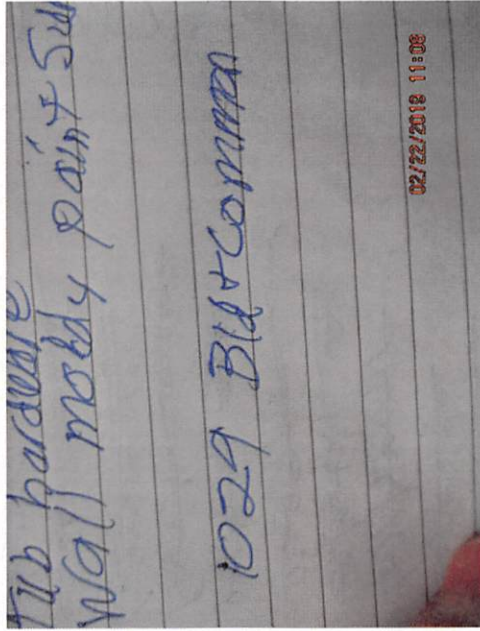 Tub hardware
Wall moldy paint + Su
1029 Bld + comman
02/22/2018 11:08